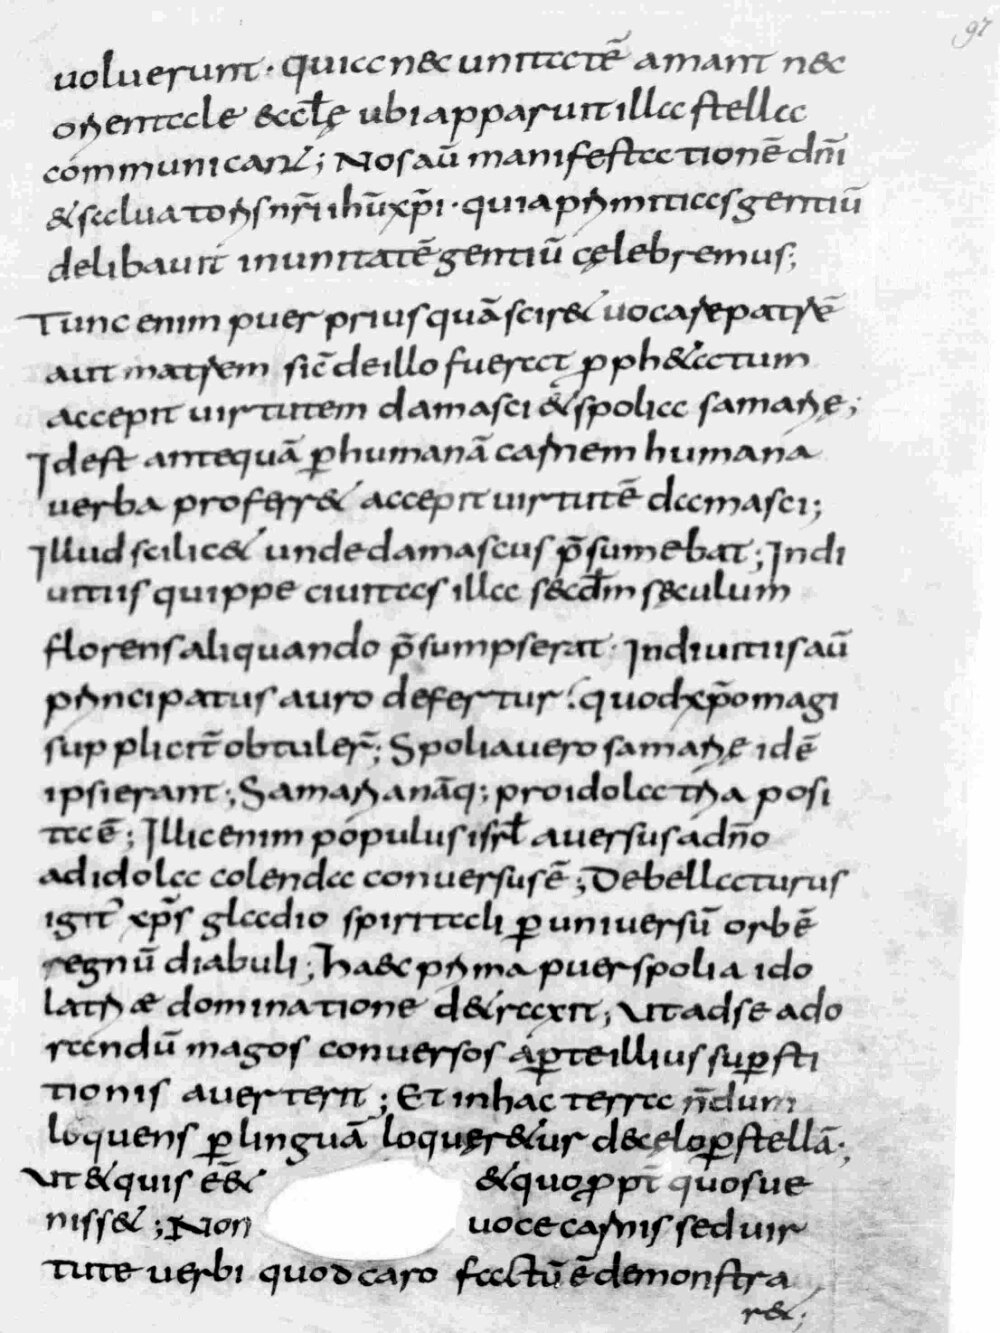 97
uoluerunt · quia nec unitatē amant nec
orientale &ccłę ubi apparuit illa stella
communicant; Nos aū manifestationē dn̄i
& saluatoris nr̄i ihū xp̄i · quia primitias gentiū
delibauit in unitatē gentiū cęlebremus;
Tunc enim puer prius quā scir& uocare patrē
aut matrem sic̄ de illo fuerat pph&atum
accepit uirtutem damasci & spolia samarię;
Id est antequā ꝑ humanā carnem humana
uerba proferr& accepit uirtutē damasci;
Illud scilic& unde damascus p̄sumebat; In di
uitiis quippe ciuitas illa secdm sęculum
florens aliquando p̄sumpserat · In diuitiis aū
principatus auro defertur · quod xp̄o magi
supplicit̄ obtuler̄; Spolia uero samarię idē
ipsi erant; Samaria nāq; pro idolatria posi
ta ē; Illic enim populus isrł auersus a dn̄o
ad idola colenda conuersus ē; Debellaturus
igit' xp̄s gladio spiritali ꝑ uniuersū orbē
regnū diaboli; haec prima puer spolia ido
latriae dominatione d&raxit; Ut ad se ado
randū magos conuersos a parte illius suꝑsti
tionis auerterit; Et in hac terra n̄dum
loquens ꝑ linguā loquer&ur de cęlo ꝑ stellā;
Ut & quis ēē& & quo ꝓpt̄ quos ue
niss&; Non uoce carnis sed uir
tute uerbi quod caro factū ē demonstra
r&;